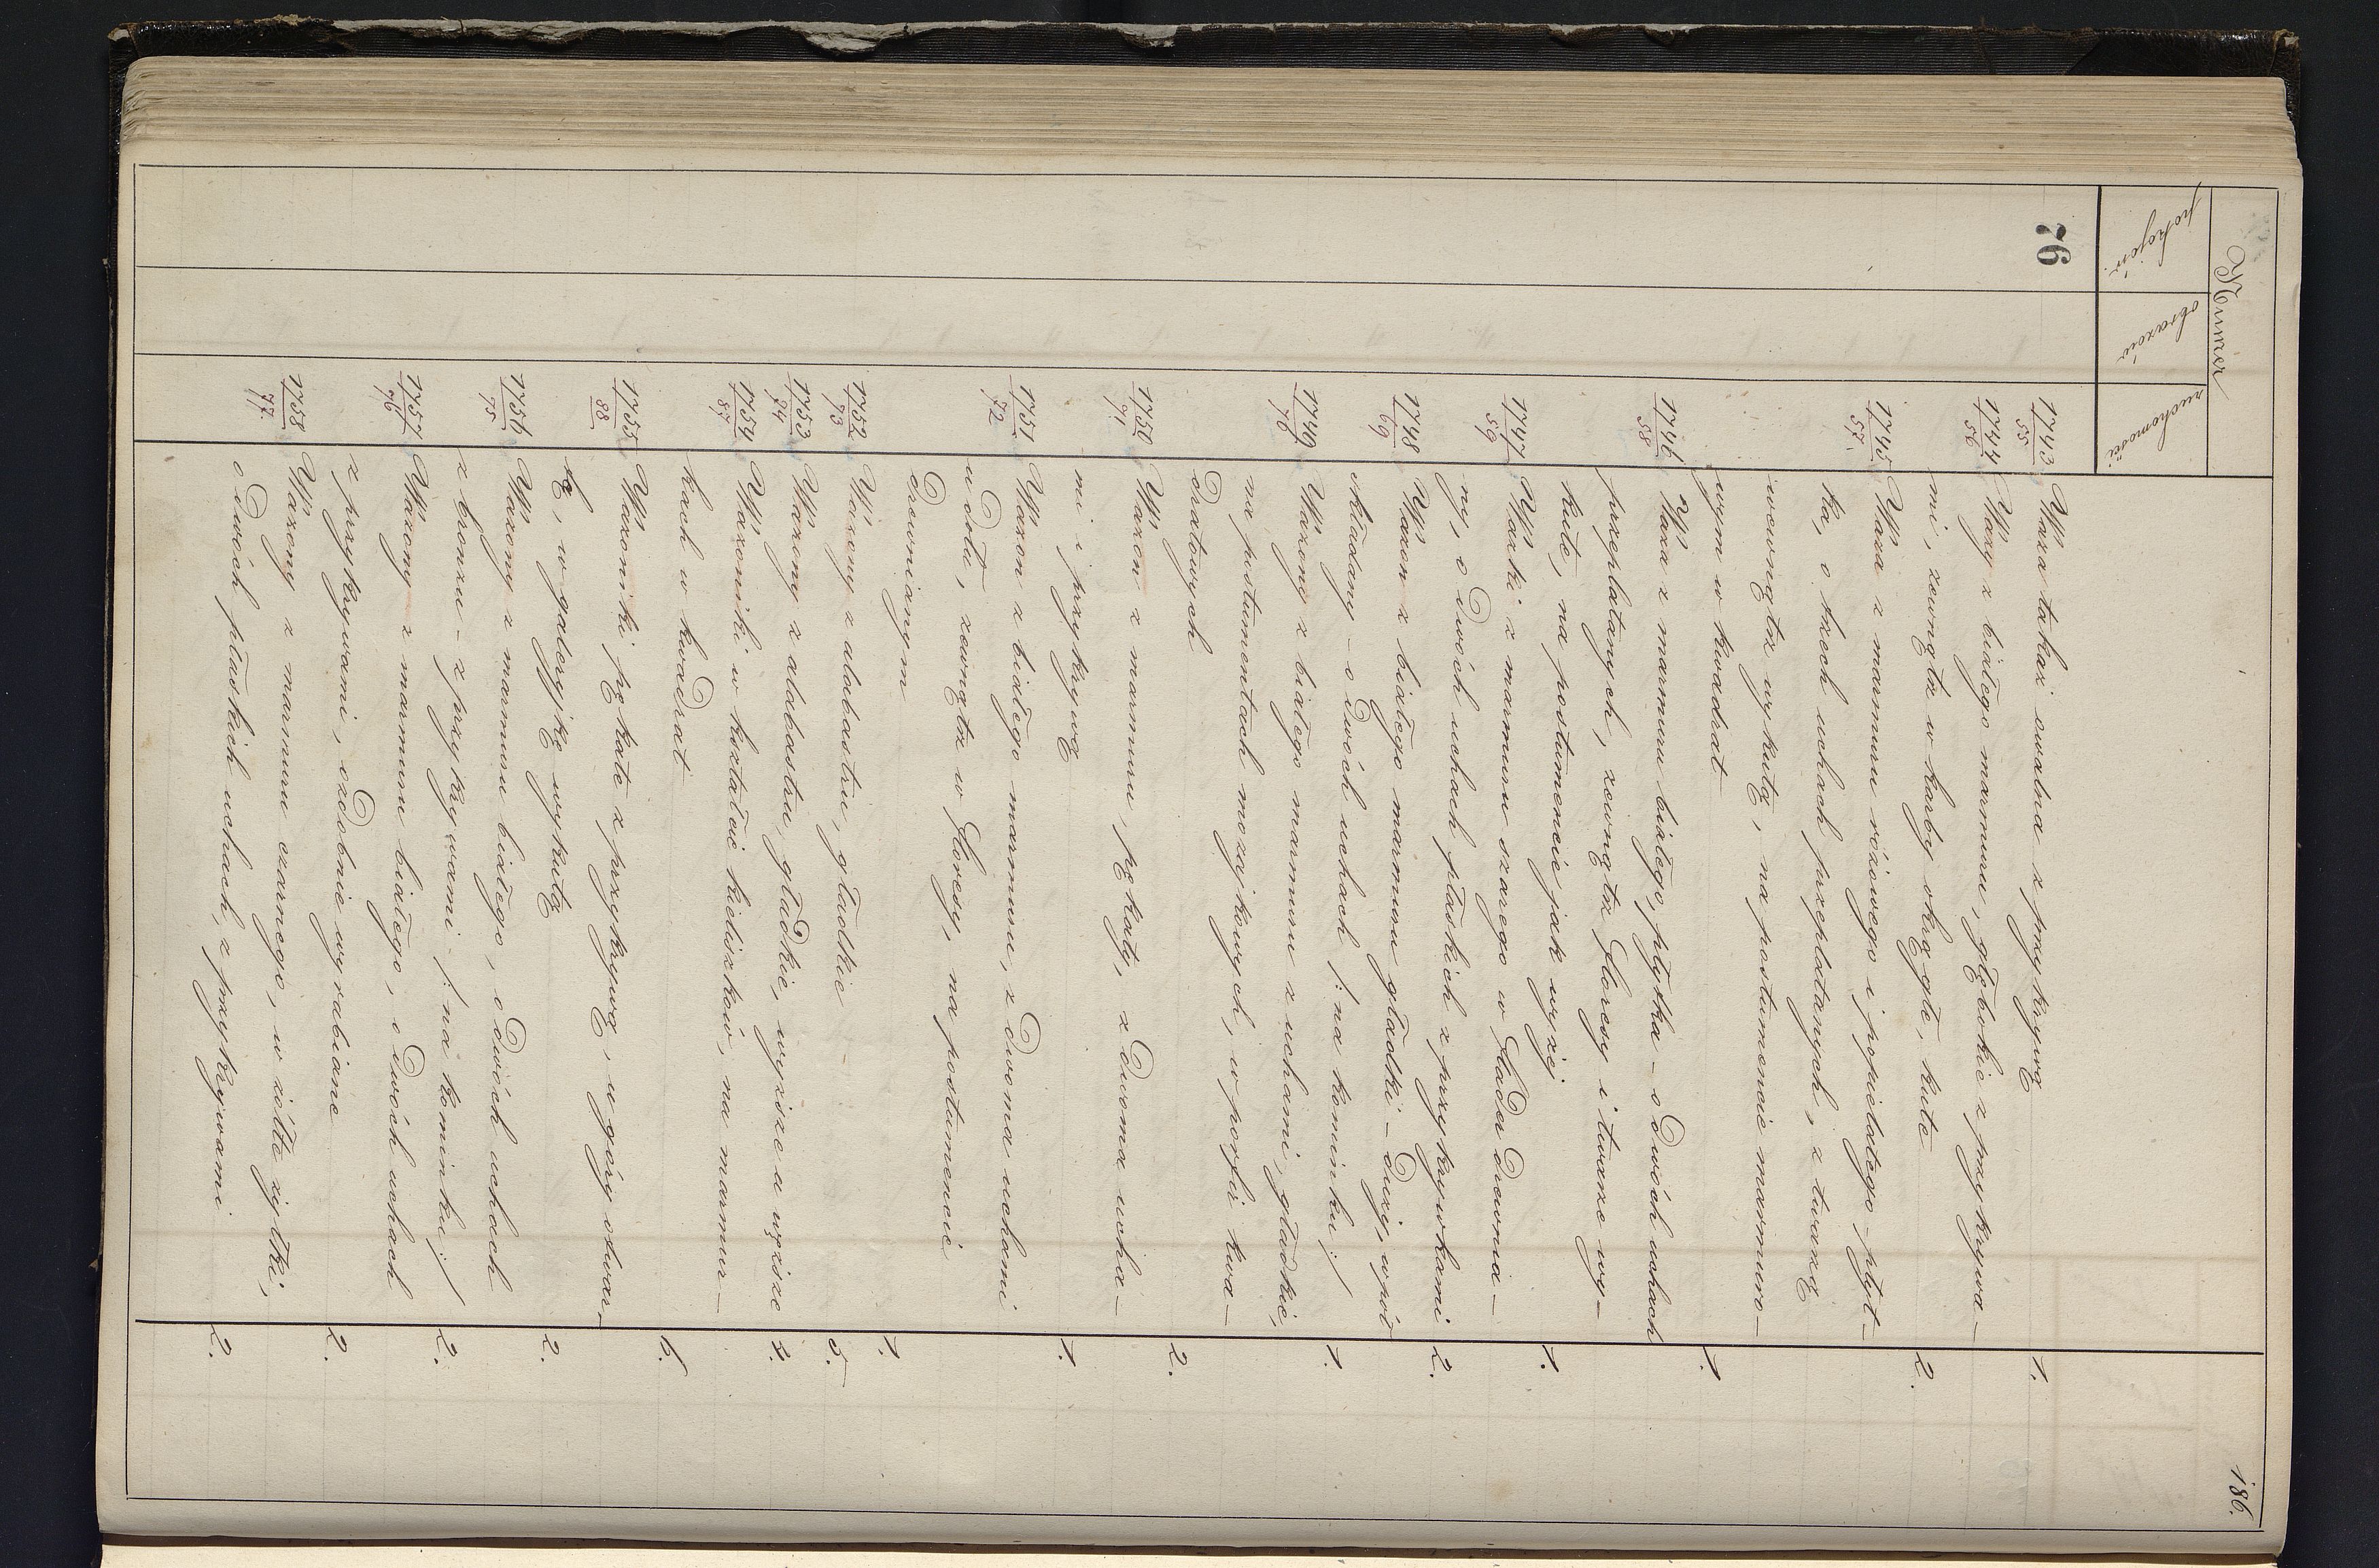 186.
Numer
pokojów. obrazów ruchomości.
76
1743/55 Waza takaż owalna z przykrywą 1.
1744/56 Wazy z białego marmuru, głębokie z przykrywa-
mi, zewnątrz w karby okrągłe, kute 2.
1745/57. Waza z marmuru różowego i popielatego - płyt-
ka, o trzech uchach przeplatanych, z twarzą
wewnątrz wykutą, na postumencie marmuro-
wym w kwadrat 1.
1746/58 Waza z marmuru białego, płytka - o dwóch uchach
przeplatanych, zewnątrz floresy i twarze wy-
kute, na postumencie jak wyżej 1.
1747/59 Wazki z marmuru szarego w flader drewnia-
ny, o dwóch uchach płaskich z przykrywkami 2.
1748/69 Wazon z białego marmuru gładki - duży, wpół
składany - o dwóch uchach /: na kominku :/ 1.
1749/70 Wazony z białego marmuru z uchami, gładkie,
na postumentach mozajkowych, w porfir kwa-
dratowych 2.
1750/71 Wazon z marmuru, pękaty, z dwoma ucha-
mi i przykrywą 1.
1751/72 Wazon z białego marmuru, z dwoma uchami
u dołu, zewnątrz w floresy, na postumencie
drewnianym 1.
1752/73 Wazony z alabastru, gładkie 5.
1753/74 Wazony z alabastru, gładkie, wyższe a węższe 4.
1754/87 Wazoniki w kształcie kieliszków, na marmur-
kach w kwadrat 6.
1755/88 Wazoniki pękate z przykrywą, u góry otwar-
tą, w galeryjkę wykutą 2.
1756/75 Wazony z marmuru białego, o dwóch uchach
z bronzu - z przykrywami /: na kominku :/ 2.
1757/76 Wazony z marmuru białego, o dwóch uchach
z przykrywami, ozdobnie wyrabiane 2.
1758/77. Wazony z marmuru czarnego, w żółte żyłki,
o dwóch płaskich uchach, z przykrywami 2.